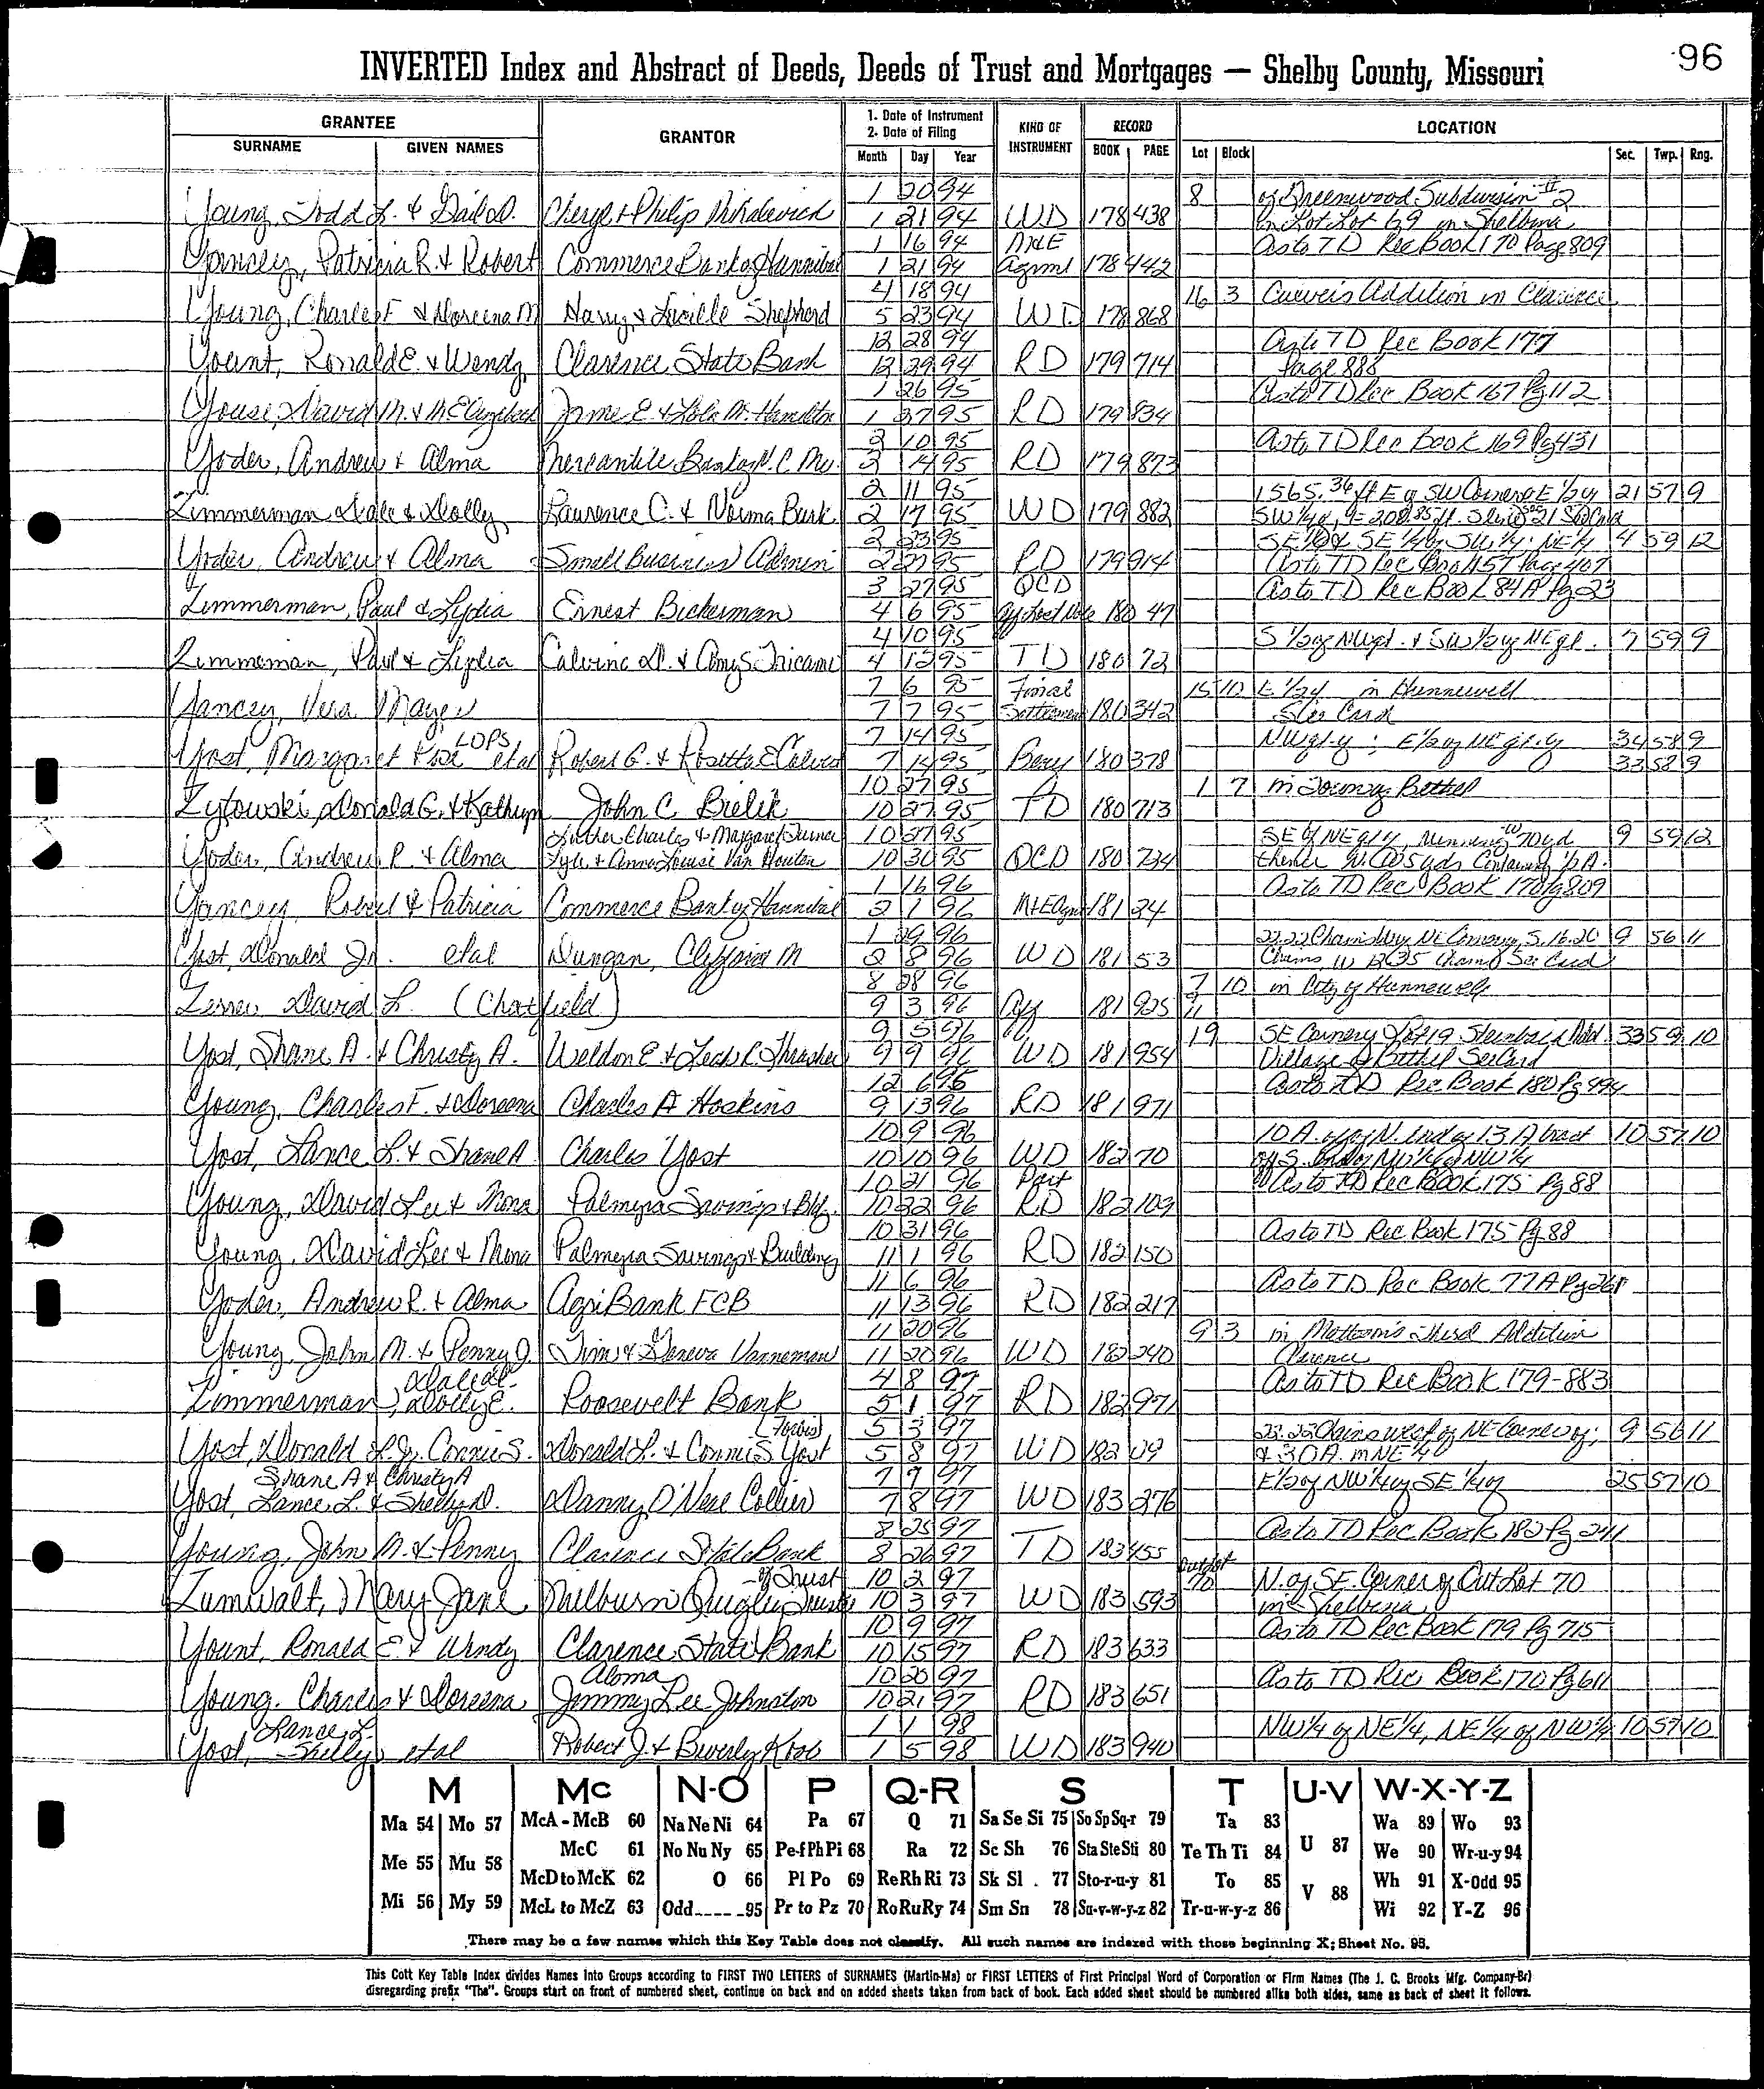 96
INVERTED Index and Abstract of Deeds, Deeds of Trust and Mortgages — Shelby County, Missouri
GRANTEE
SURNAME GIVEN NAMES
GRANTOR
1. Date of Instrument
2. Date of Filing
Month Day Year
KIND OF INSTRUMENT
RECORD
BOOK PAGE
LOCATION
Lot Block Sec. Twp. Rng.
1 20 94 8 of Greenwood Subdivision 2
Young, Todd L. & Gail D. Cheryl & Philip 1 21 94 WD 178 438 in Shelbina
1 16 94 As to TD Rec Book 170 Page 809
Yancey, Patricia R. & Robert Commerce Bank of Hannibal 1 21 94 Agrmt 178 442
4 18 94 16 3 Addition in Clarence
Young, Charles F & Doreena M Harry & Lucille Shepherd 5 23 94 WD 178 868
12 28 94 As to TD Rec Book 177
Yount, Ronald E. & Wendy Clarence State Bank 12 29 94 RD 179 714 Page 888
1 26 95 As to TD Rec Book 167 Pg 112
Youse, David M. & Hamilton 1 27 95 RD 179 834
2 10 95 As to TD Rec Book 169 Pg 431
Yoder, Andrew & Alma Mercantile Bank of N.C. Mo. 2 14 95 RD 179 873
2 11 95 1565.36 ft E of SW Corner of E 1/2 of 21 57 9
Zimmerman Dale & Dolly Laurence C. & Norma Burk 2 17 95 WD 179 882 See Card
2 23 95 4 59 12
Yoder, Andrew & Alma Small Business Admin 2 27 95 RD 179 914 As to TD Rec Book 157 Page 407
3 27 95 QCD As to TD Rec Book 84A Pg 23
Zimmerman, Paul & Lydia Ernest Bickerman 4 6 95 180 47
4 10 95 7 59 9
Zimmeman, Paul & Lydia Calvine D. & Amy S. 4 12 95 TD 180 72
7 6 95 Final 15 10 E 1/2 of in Hunnewell
Yancey, Vera Mayes 7 7 95 Settlement 180 342 See Card
LOPS 7 14 95 34 58 9
Yost, Margaret Rose etal Robert G. & Rosetta E Calvert 7 14 95 Beny 180 378 33 58 9
10 27 95 1 7 in Town of Bethel
Zytowski, Donald G. & Kathryn John C. Bielik 10 27 95 TD 180 713
Luther Charles & Margaret Turner 10 27 95 SE of NE qr of, Running W 70 yd 9 59 12
Yoder, Andrew R. & Alma Lyle & Anna Louise Van Houten 10 30 95 QCD 180 734 Containing 1/2 A.
1 16 96 As to TD Rec Book 170 Pg 809
Yancey Robert & Patricia Commerce Bank of Hannibal 2 1 96 M+E Agmt 181 24
1 29 96 22.22 Chains W of NE Corner 9 56 11
Yost, Donald Jr. etal Dungan, M 2 8 96 WD 181 53 See Card
8 28 96 7 10 in City of Hunnewell
David L. (Chatfield) 9 3 96 Aff 181 925 11
9 5 96 19 SE Corner of Lot 19 Add 33 59 10
Yost, Shane A. & Christy A. Weldon E & Leah R Thrasher 9 9 96 WD 181 954 Village of Bethel See Card
12 6 95 As to TD Rec Book 180 Pg 894
Young, Charles F. & Doreena Charles A Hoskins 9 13 96 RD 181 971
10 9 96 10 A. off of N. End of 13 A tract 10 57 10
Yost, Lance L. & Shane A. Charles Yost 10 10 96 WD 182 70 off S. End of NW 1/4 of NW 1/4
10 21 96 Part As to TD Rec Book 175 Pg 88
Young, David Lee & Mona Palmyra Savings & Bldg. 10 22 96 RD 182 109
10 31 96 As to TD Rec Book 175 Pg 88
Young, David Lee & Mona Palmyra Savings & Building 11 1 96 RD 182 150
11 6 96 As to TD Rec Book 77A Pg 261
Yoder, Andrew R. & Alma AgriBank FCB 11 13 96 RD 182 217
11 20 96 9 3 in Third Addition
Young, John M. & Penny J. Tim & Geneva Vanneman 11 20 96 WD 182 240 Clarence
4 8 97 As to TD Rec Book 179-883
Zimmerman, Dolly E. Roosevelt Bank 5 1 97 RD 182 971
(Forbis) 5 5 97 22.22 Chains west of NE Corner of; 9 56 11
Yost, Donald L. Jr. Connie S. Donald L. & Connie S Yost 5 8 97 WD & 30 A. in NE 1/4
Shane A & Christy A 7 7 97 E 1/2 of NW 1/4 of SE 1/4 of 25 57 10
Yost, Lance L. & Shelly D. Danny O'Neal Collier 7 8 97 WD 183 276
8 25 97 As to TD Rec Book 182 Pg 241
Young, John M. & Penny Clarence State Bank 8 26 97 TD 183 455
of Trust 10 2 97 Outlot 70 N. of SE Corner of Out Lot 70
Zumwalt, Mary Jane Milburn Quigley Trustee 10 3 97 WD 183 593 in Shelbina
10 9 97 As to TD Rec Book 179 Pg 715
Yount, Ronald E. & Wendy Clarence State Bank 10 15 97 RD 183 633
Aloma 10 20 97 As to TD Rec Book 170 Pg 611
Young, Charles & Doreena Jimmy Lee Johnston 10 21 97 RD 183 651
Lance L. 1 1 98 NW 1/4 of NE 1/4, NE 1/4 of NW 1/4 10 57 10
Yost, Shelly etal Robert J. & Beverly Krob 1 5 98 WD 183 940
M Mc N-O P Q-R S T U-V W-X-Y-Z
Ma 54 Mo 57 McA - McB 60 Na Ne Ni 64 Pa 67 Q 71 Sa Se Si 75 So Sp Sq-r 79 Ta 83 U 87 Wa 89 Wo 93
Me 55 Mu 58 McC 61 No Nu Ny 65 Pe-f Ph Pi 68 Ra 72 Sc Sh 76 Sta Ste Sti 80 Te Th Ti 84 We 90 Wr-u-y 94
McD to McK 62 O 66 Pl Po 69 Re Rh Ri 73 Sk Sl . 77 Sto-r-u-y 81 To 85 V 88 Wh 91 X-Odd 95
Mi 56 My 59 McL to McZ 63 Odd_ _ _ _95 Pr to Pz 70 Ro Ru Ry 74 Sm Sn 78 Su-v-w-y-z 82 Tr-u-w-y-z 86 Wi 92 Y-Z 96
There may be a few names which this Key Table does not classify. All such names are indexed with those beginning X; Sheet No. 95.
This Cott Key Table Index divides Names into Groups according to FIRST TWO LETTERS of SURNAMES (Martin-Ma) or FIRST LETTERS of First Principal Word of Corporation or Firm Names (The J. C. Brooks Mfg. Company-Br)
disregarding prefix "The". Groups start on front of numbered sheet, continue on back and on added sheets taken from back of book. Each added sheet should be numbered alike both sides, same as back of sheet it follows.